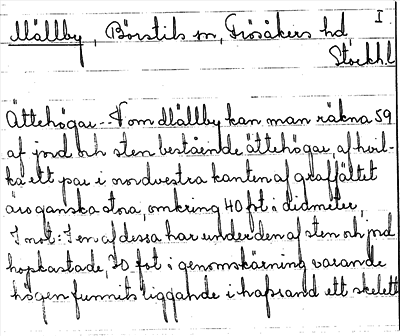 I
Mällby, Börstils sn, Frösåkers hd,
Stockh.l
Ättehögar. - Norr om Mällby kan man räkna 59
af jord och sten bestående ättehögar, af hvil-
ka ett par i nordvestra kanten af graffältet
äro ganska stora, omkring 40 fot i diameter,
I not: I en af dessa har under den af sten och jord
hopkastade, 20 fot i genomskärning varande
högen funnits liggande i hafssand ett skelett